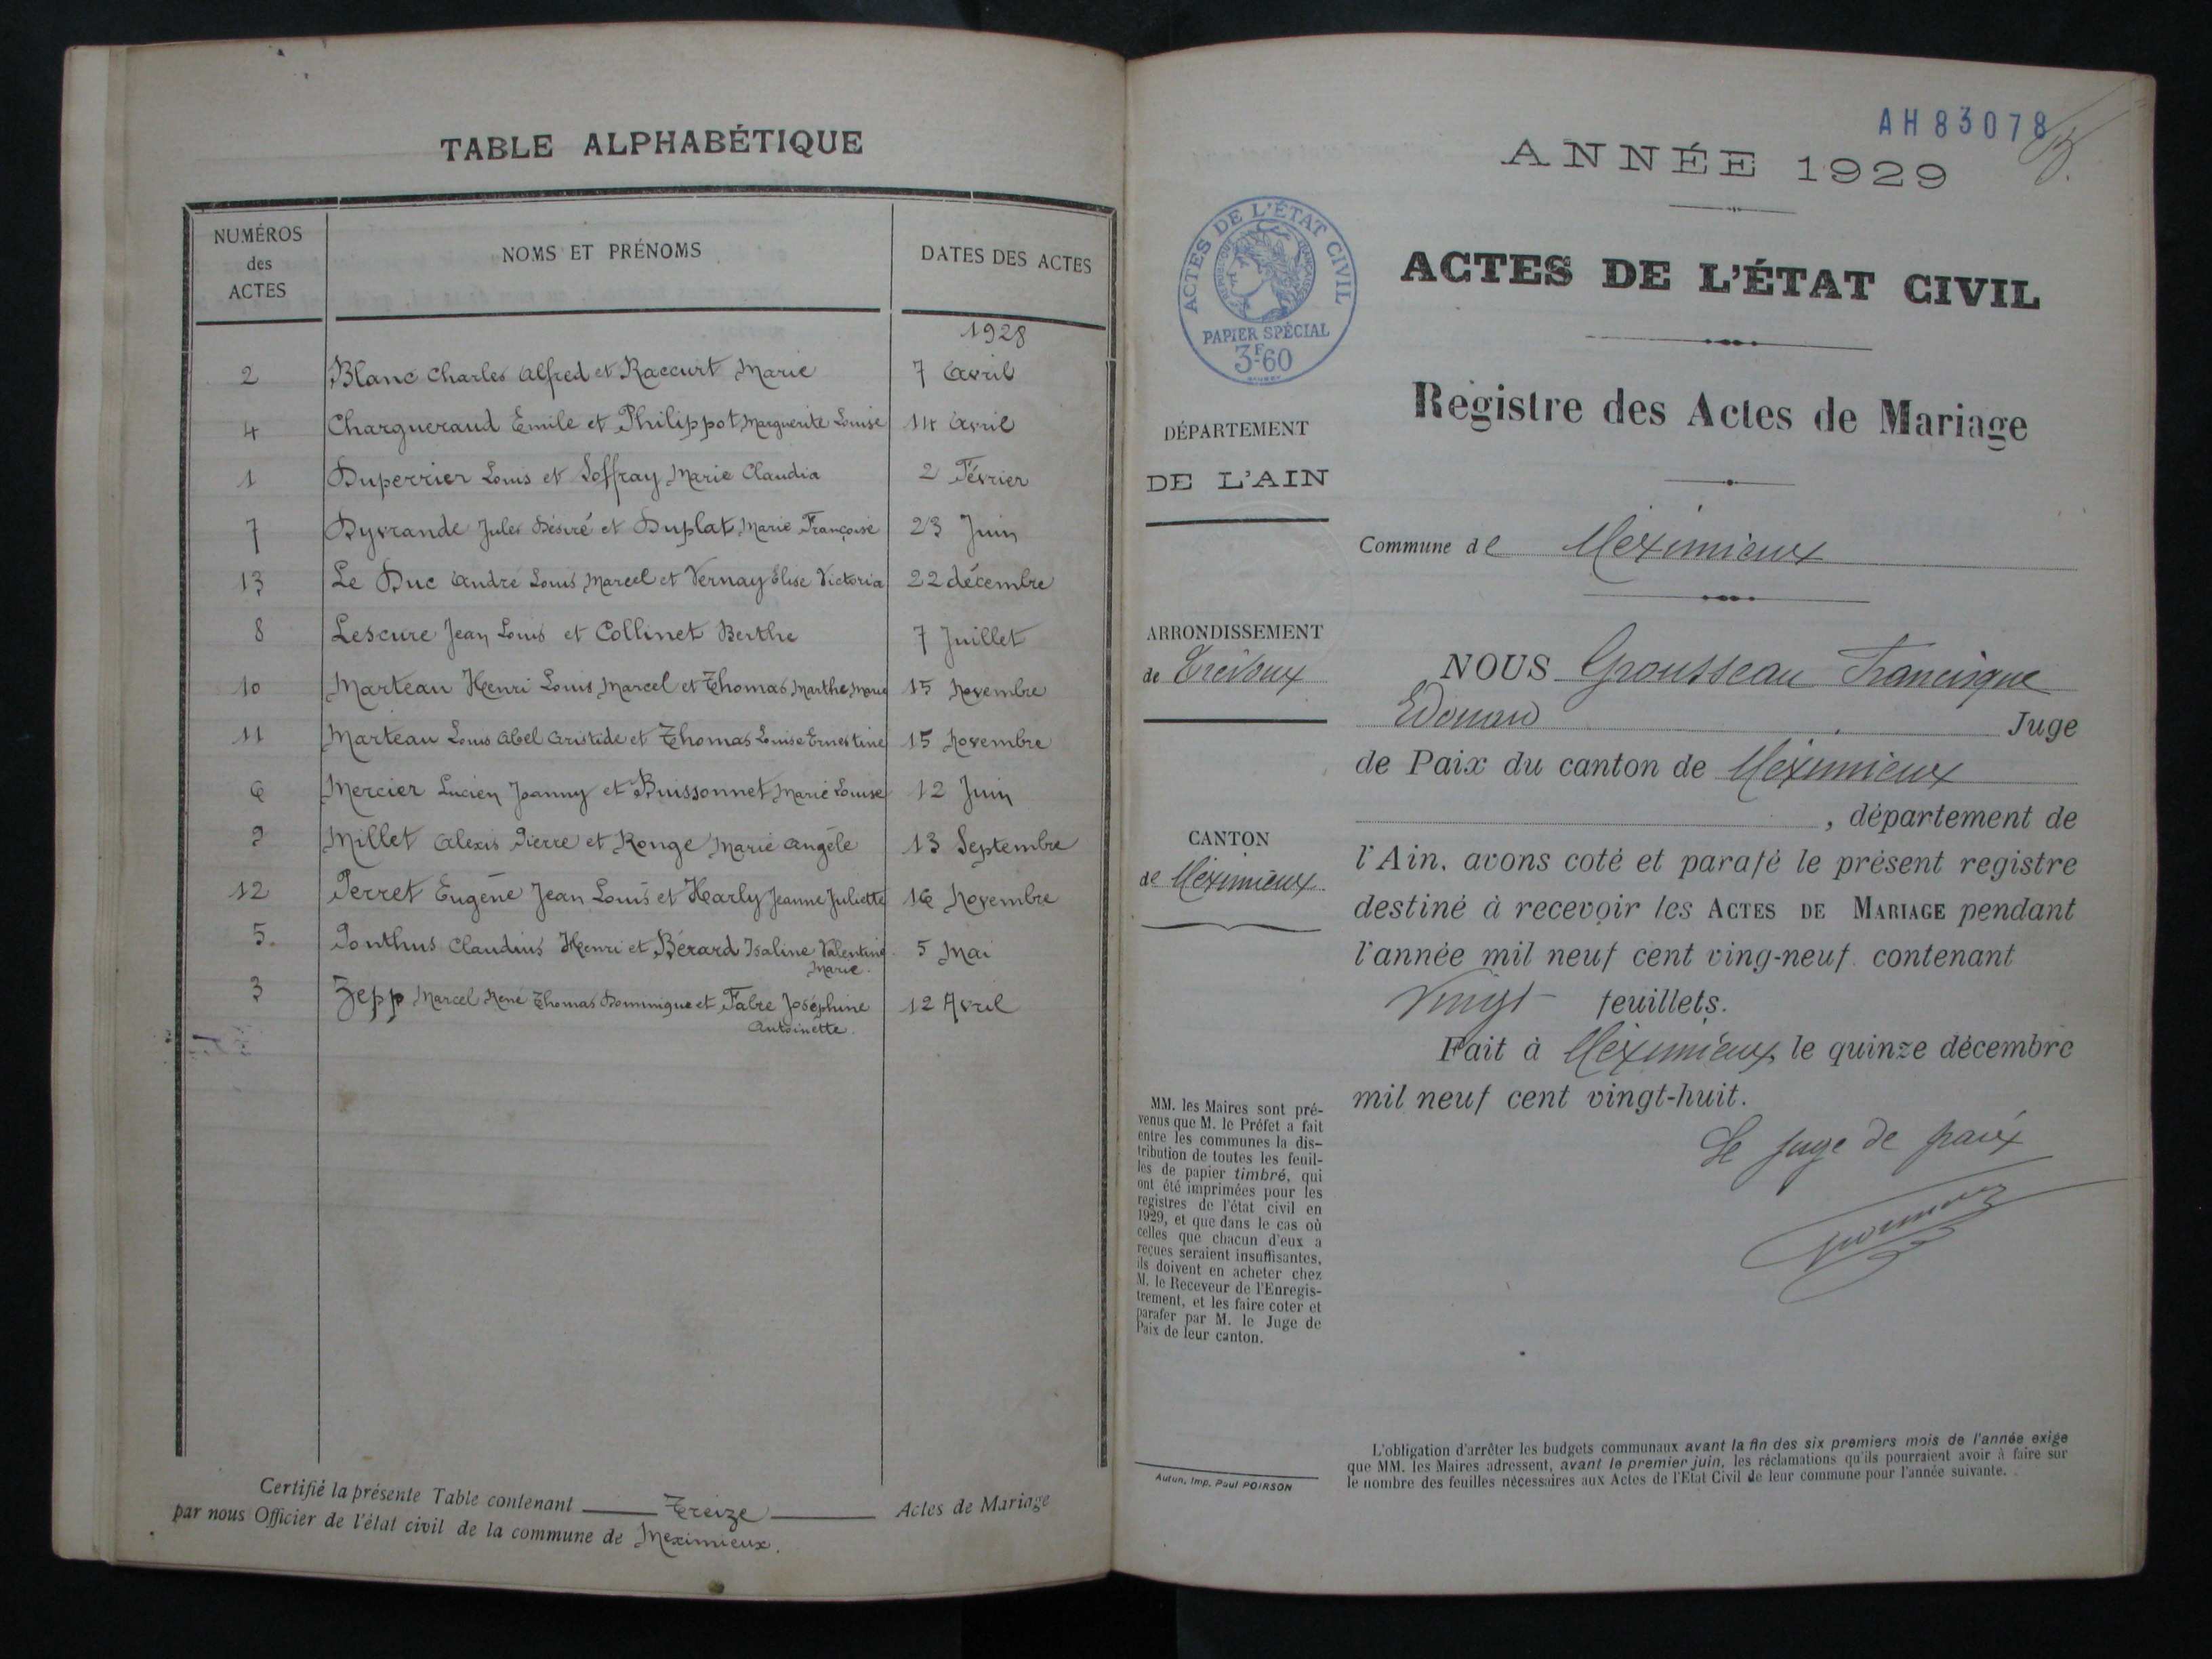 TABLE ALPHABÉTIQUE
NUMÉROS
des
ACTES
NOMS ET PRÉNOMS
DATES DES ACTES
1928
2 Blanc Charles Alfred et Raccurt Marie 7 Avril
4 Chargueraud Emile et Philippot Marguerite Louise 14 Avril
1 Duperrier Louis et Joffray Marie Claudia 2 Février
7 Dyvrande Jules Désiré et Duplat Marie Françoise 23 Juin
13 Le Duc André Louis Marcel et Vernay Elise Victoria 22 décembre
8 Lescure Jean Louis et Collinet Berthe 7 Juillet
10 Marteau Henri Louis Marcel et Thomas Marthe Marie 15 Novembre
11 Marteau Louis Abel Aristide et Thomas Louise Ernestine 15 Novembre
6 Mercier Lucien Joanny et Buissonnet Marie Louise 12 Juin
9 Millet Alexis Pierre et Ronge Marie Angèle 13 Septembre
12 Perret Eugène Jean Louis et Harly Jeanne Juliette 16 Novembre
5. Ponthus Claudius Henri et Bérard Isaline Valentine 5 Mai
Marie.
3 Zepp Marcel René Thomas Dominique et Fabre Joséphine 12 Avril
Antoinette.
Certifié la présente Table contenant Treize Actes de Mariage
par nous Officier de l'état civil de la commune de Meximieux.
AH83078
ANNÉE 1929
ACTES DE L'ÉTAT CIVIL
RÉPUBLIQUE FRANÇAISE
PAPIER SPÉCIAL
3F60
ACTES DE L'ÉTAT CIVIL
Registre des Actes de Mariage
DÉPARTEMENT
DE L'AIN
Commune de Méximieux
ARRONDISSEMENT
de Trévoux
CANTON
de Méximieux
NOUS Grousseau Francisque
Edouard Juge
de Paix du canton de Méximieux
, département de
l'Ain, avons coté et parafé le présent registre
destiné à recevoir les ACTES DE MARIAGE pendant
l'année mil neuf cent ving-neuf contenant
Vingt feuillets.
Fait à Méximieux le quinze décembre
mil neuf cent vingt-huit.
Le juge de paix
MM. les Maires sont pré-
venus que M. le Préfet a fait
entre les communes la dis-
tribution de toutes les feuil-
les de papier timbré, qui
ont été imprimées pour les
registres de l'état civil en
1929, et que dans le cas où
celles que chacun d'eux a
reçues seraient insuffisantes,
ils doivent en acheter chez
M. le Receveur de l'Enregis-
trement, et les faire coter et
parafer par M. le Juge de
Paix de leur canton.
Autun, Imp. Paul POIRSON
L'obligation d'arrêter les budgets communaux avant la fin des six premiers mois de l'année exige
que MM. les Maires adressent, avant le premier juin, les réclamations qu'ils pourraient avoir à faire sur
le nombre des feuilles nécessaires aux Actes de l'Etat Civil de leur commune pour l'année suivante.